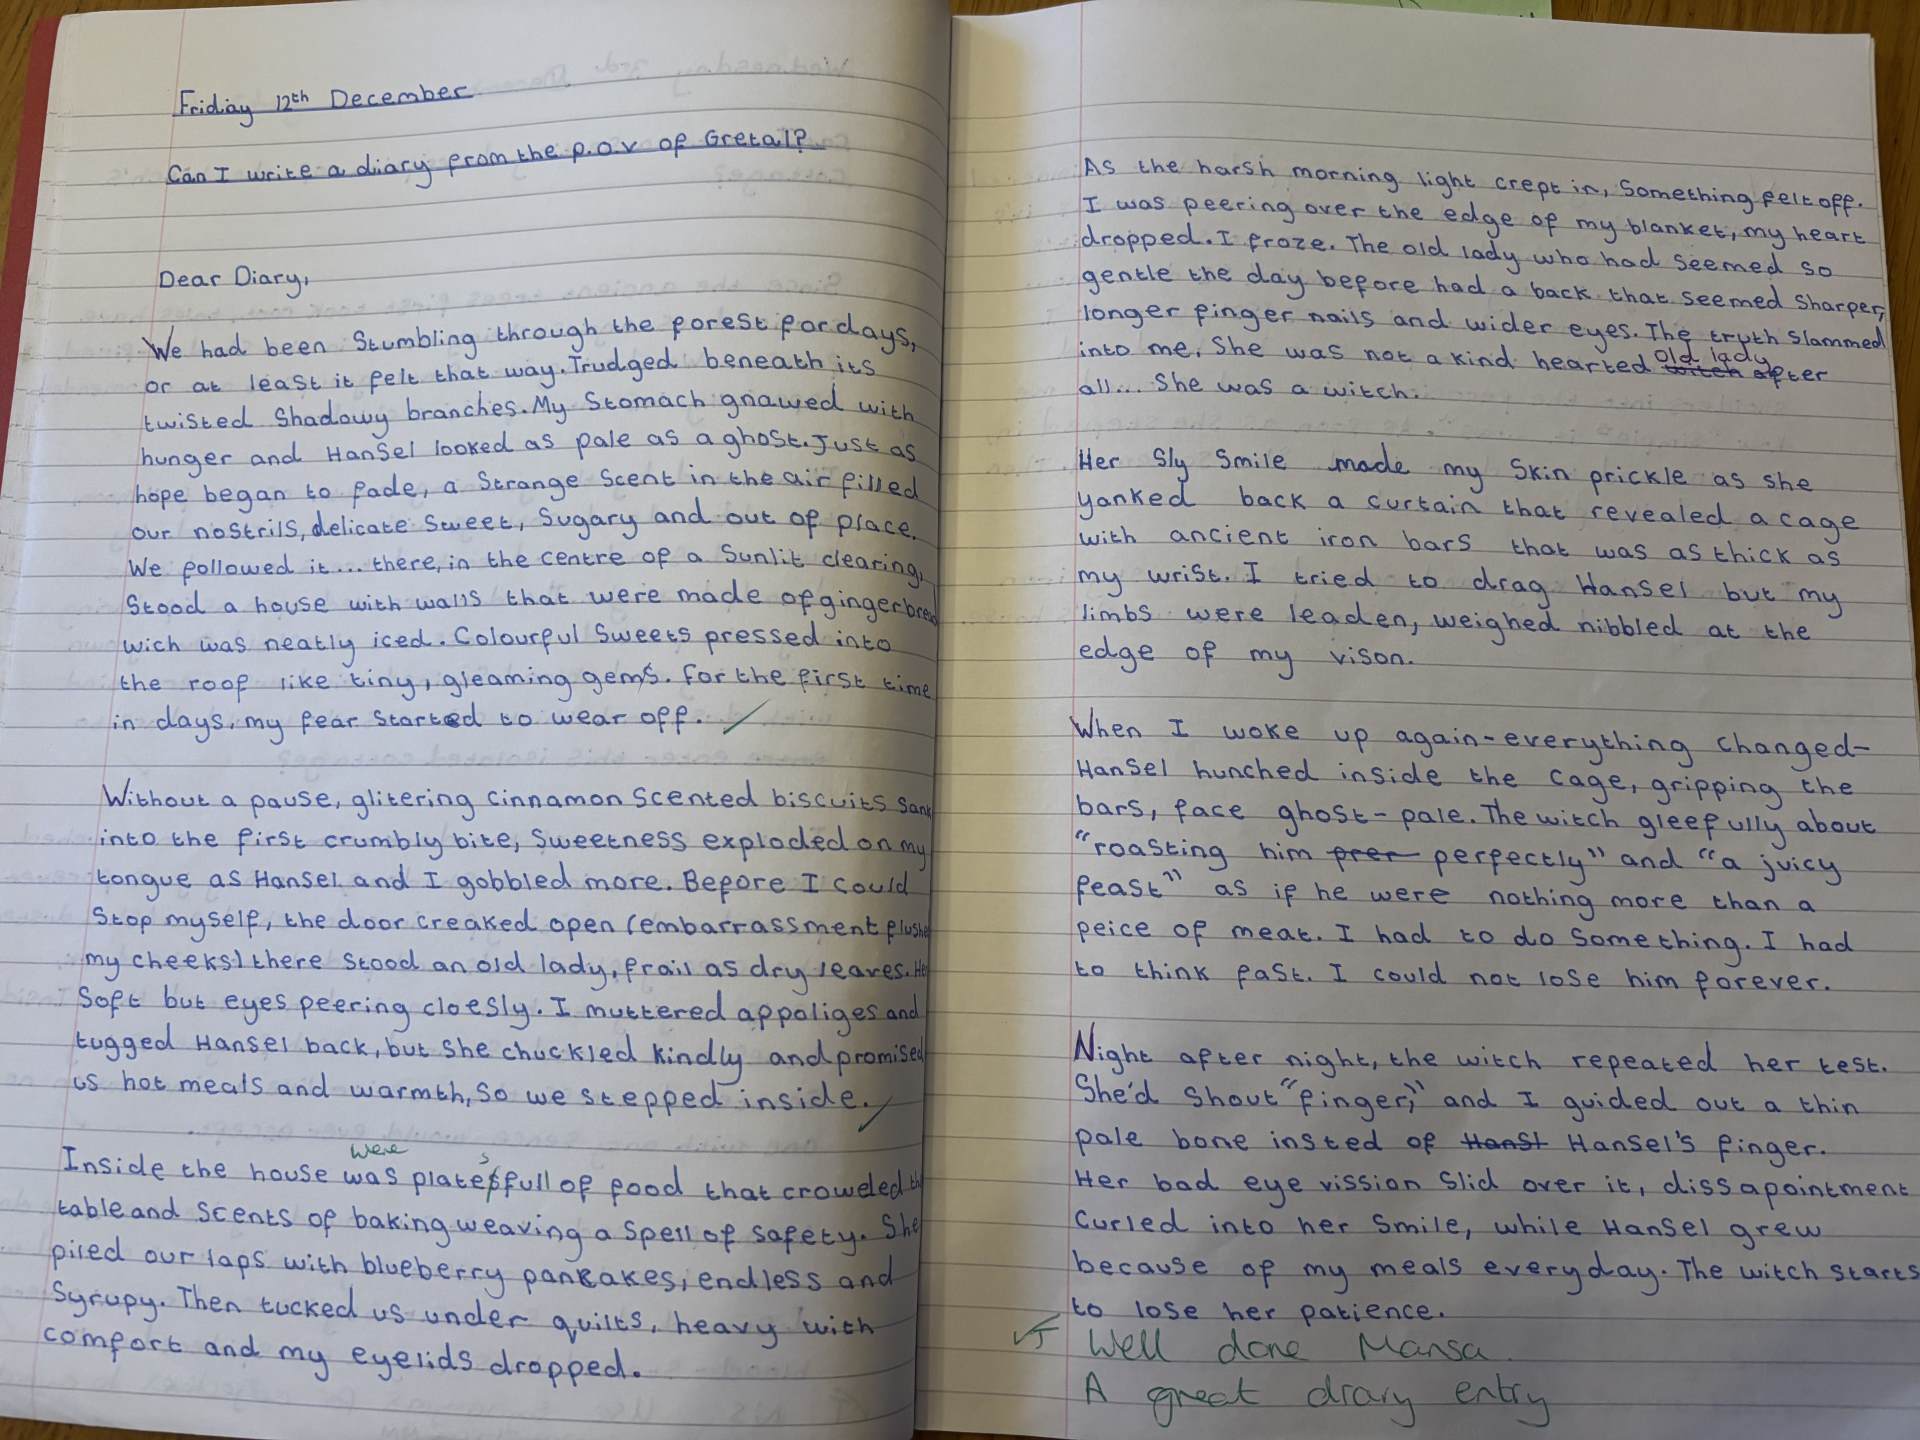 Friday 12th December
Can I write a diary from the p.o.v of Gretal?
Dear Diary,
We had been Stumbling through the forest for days,
or at least it felt that way. Trudged beneath its
twisted Shadowy branches. My Stomach gnawed with
hunger and Hansel looked as pale as a ghost. Just as
hope began to fade, a Strange Scent in the air filled
our nostrils, delicate Sweet, Sugary and out of place.
We followed it... there, in the centre of a Sunlit clearing,
Stood a house with walls that were made of gingerbread
wich was neatly iced. Colourful Sweets pressed into
the roof like tiny, gleaming gems. For the first time
in days, my fear started to wear off.
Without a pause, glitering cinnamon scented biscuits sank
into the first crumbly bite, Sweetness exploded on my
tongue as Hansel and I gobbled more. Before I could
Stop myself, the door creaked open (embarrassment flushed
my cheeks) there stood an old lady, frail as dry leaves. Her
Soft but eyes peering cloesly. I muttered appoliges and
tugged Hansel back, but she chuckled kindly and promised
us hot meals and warmth, so we stepped inside.
were s
Inside the house was plates full of food that croweled the
table and scents of baking weaving a spell of safety. She
piled our laps with blueberry pancakes, endless and
Syrupy. Then tucked us under quilts, heavy with
comfort and my eyelids dropped.
As the harsh morning light crept in, Something felt off.
I was peering over the edge of my blanket, my heart
dropped. I froze. The old lady who had seemed so
gentle the day before had a back that seemed sharper,
longer finger nails and wider eyes. The truth slammed
into me. She was not a kind hearted old lady after
all... She was a witch.
Her Sly Smile made my Skin prickle as she
yanked back a curtain that revealed a cage
with ancient iron bars that was as thick as
my wrist. I tried to drag Hansel but my
limbs were leaden, weighed nibbled at the
edge of my vison.
When I woke up again-everything changed-
Hansel hunched inside the cage, gripping the
bars, face ghost-pale. The witch gleefully about
"roasting him prer perfectly" and "a juicy
feast" as if he were nothing more than a
peice of meat. I had to do something. I had
to think fast. I could not lose him forever.
Night after night, the witch repeated her test.
She'd shout "finger," and I guided out a thin
pale bone insted of Hanst Hansel's finger.
Her bad eye vission slid over it, dissapointment
curled into her smile, while Hansel grew
because of my meals everyday. The witch starts
to lose her patience.
Well done Mansa.
A great diary entry